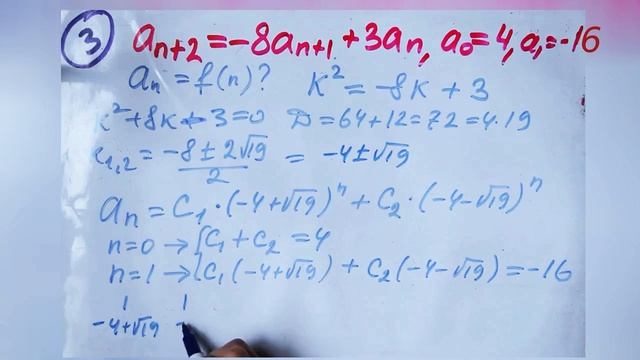 3 aₙ₊₂=-8aₙ₊₁+3aₙ, a₀=4, a₁=-16
aₙ=f(n)? K²=-8K+3
K²+8K-3=0 D=64+12=72=4·19
K₁,₂=(-8±2√19)/2=-4±√19
aₙ=C₁·(-4+√19)ⁿ+C₂·(-4-√19)ⁿ
n=0→{C₁+C₂=4
n=1→{C₁(-4+√19)+C₂(-4-√19)=-16
1 1
-4+√19 -